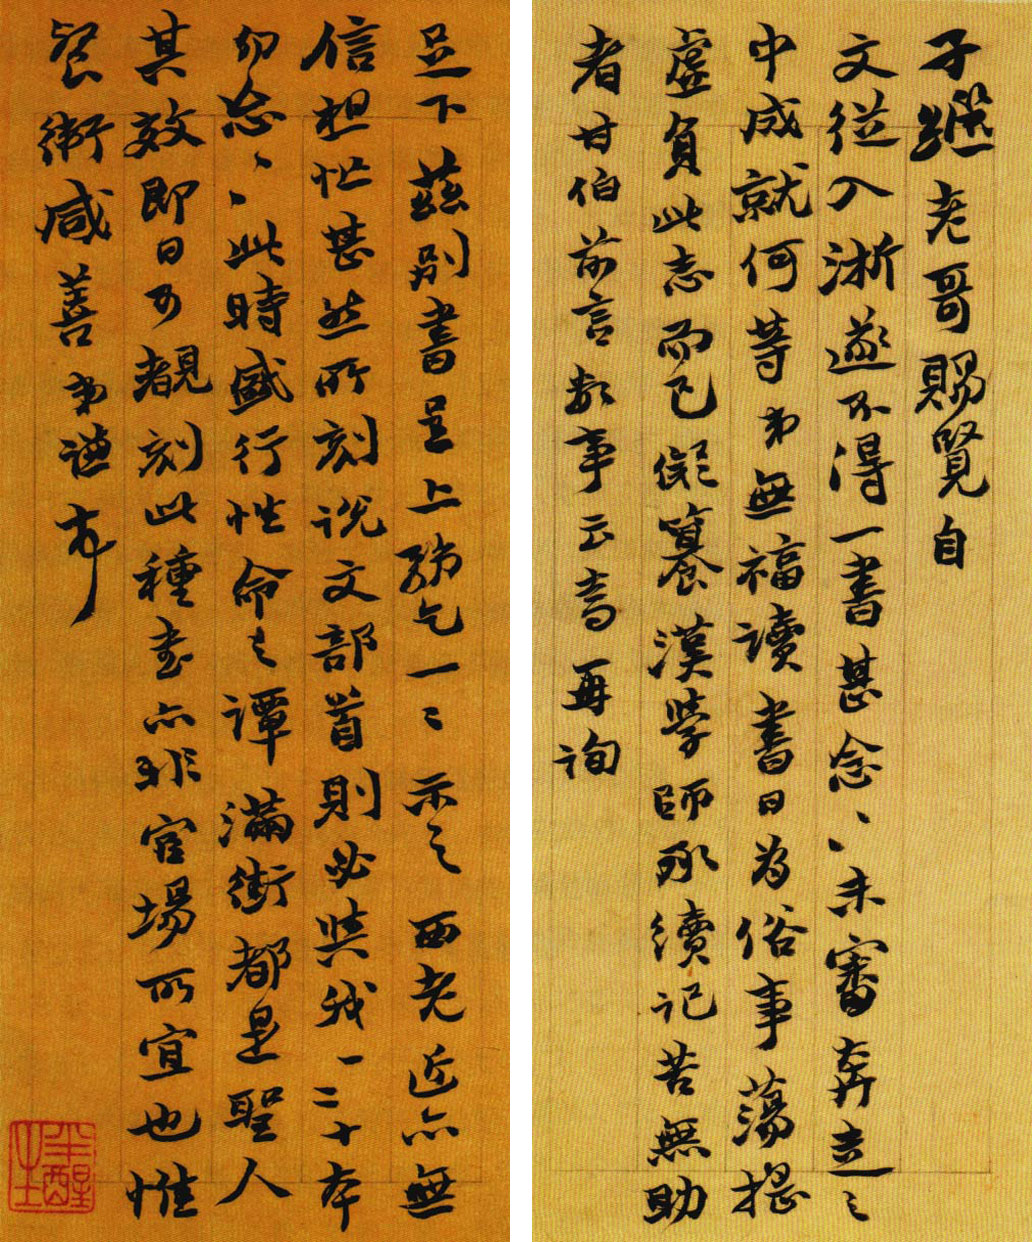 子繼老哥賜覽自
文從入浙遂不得一書甚念〻未審奔走之
中成就何等弟無福讀書日為俗事蕩搖
虛負此志而已儗纂漢學師承續記苦無助
者甘伯前言數事云當再詢
足下茲別書呈上務乞一〻示之西老近亦無
信担忙甚然所刻說文部首則必與我一二十本
勿忘〻此時盛行性命之譚滿街都是聖人
其效即日可覩刻此種書亦非官場所宜也惟
鑒咸善弟譓